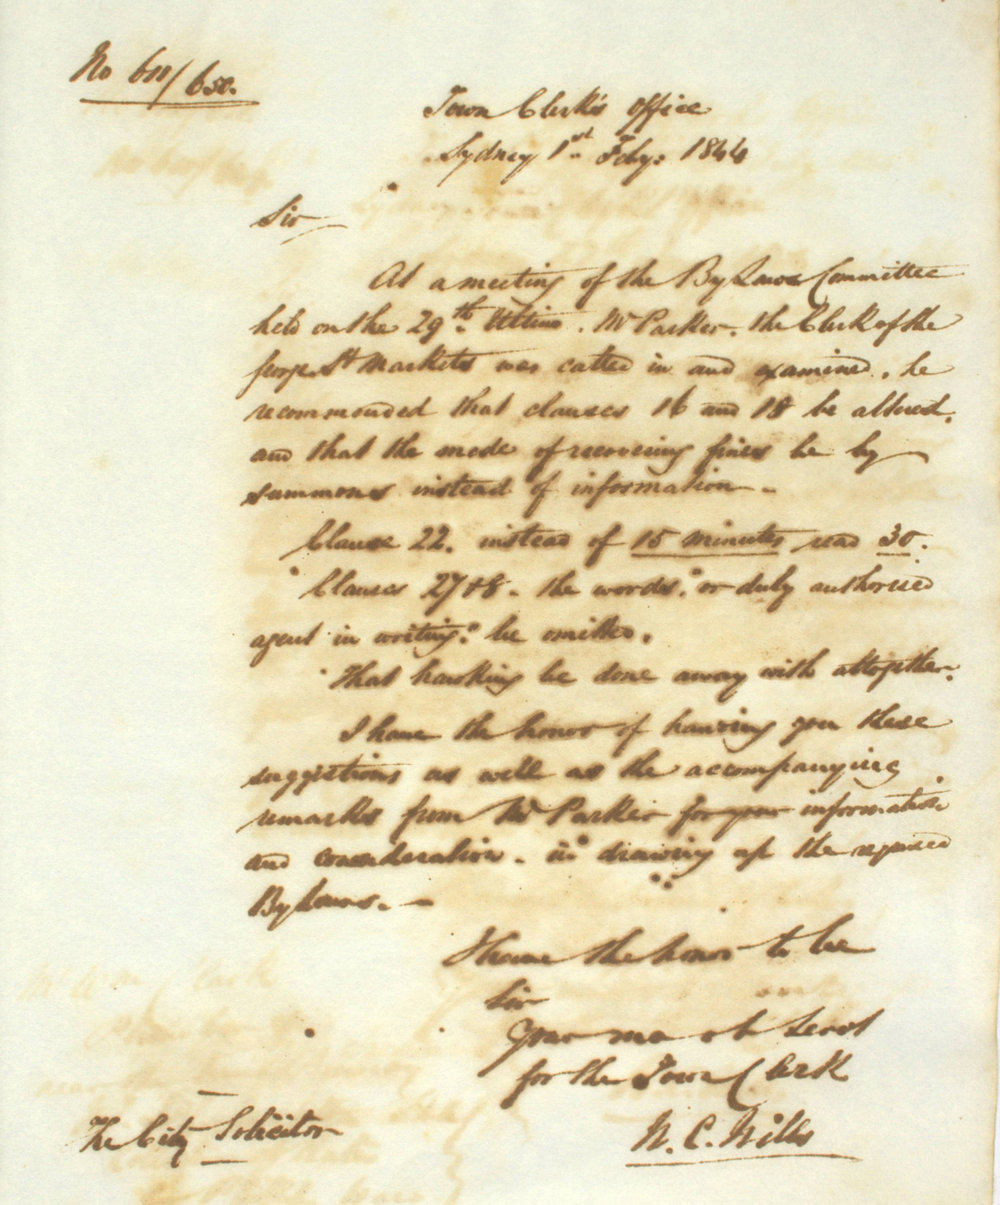 No 611/650.
Town Clerk's Office
Sydney 1st. Feby: 1844
Sir
At a meeting of the By Laws Committee
held on the 29th. Ultimo. Mr Parker. the Clerk of the
St Markets was called in and examined. he
recommended that clauses 16 and 18 be altered.
and that the mode of recovering fines be by
summons instead of information -
Clause 22. instead of 15 minutes read 30.
Clauses 27 & 8. the words "or duly authorised
agent in writing." be omitted.
That hawking be done away with altogether.
I have the honor of handing you these
suggestions as well as the accompanying
remarks from Mr Parker for your information
and consideration. in drawing up the required
By Laws. —
I have the honor to be
Sir
Your mo ob Servt
for the Town Clerk
W. C. Wills
The City Solicitor